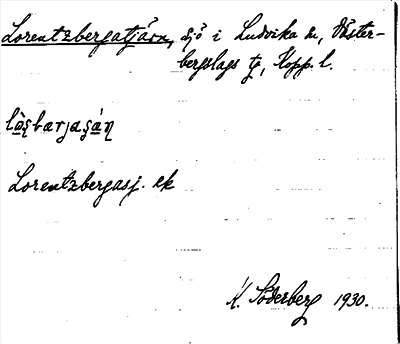 Lorentzbergatjärn, sjö i Ludvika sn, Väster-
bergslags tg, Kopp. l.
lò̱şbærjaşá̱ƞ
Lorentzbergasj. ek
K. Söderberg 1930.